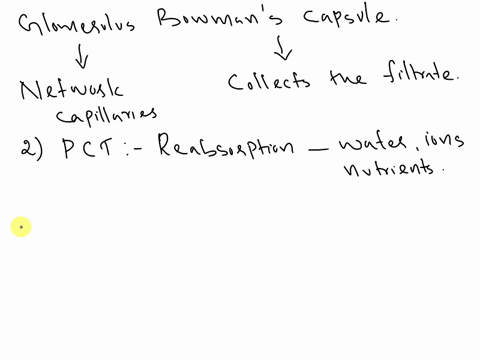 Glomerulus Bowman's Capsule.
↓ ↓
Network Collects the filtrate.
capillaries
2) PCT :- Reabsorption — water, ions
nutrients.